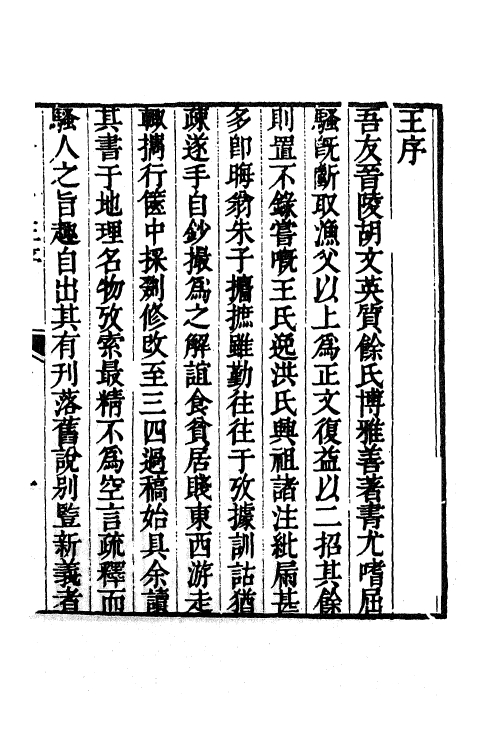 王序
吾友晉陵胡文英質餘氏博雅善著書尤嗜屈
騷旣斷取漁父以上爲正文復益以二招其餘
則置不錄嘗嘅王氏逸洪氏興祖諸注紕漏甚
多卽晦翁朱子攟摭雖勤往往于攷據訓詁猶
疎遂手自鈔撮爲之解詁食貧居賤東西游走
輙攜行篋中採劉修改至三四過稿始具余讀
其書于地理名物攷索最精不爲空言疏釋而
騷人之旨趣自出其有刊落舊說别豎新義者